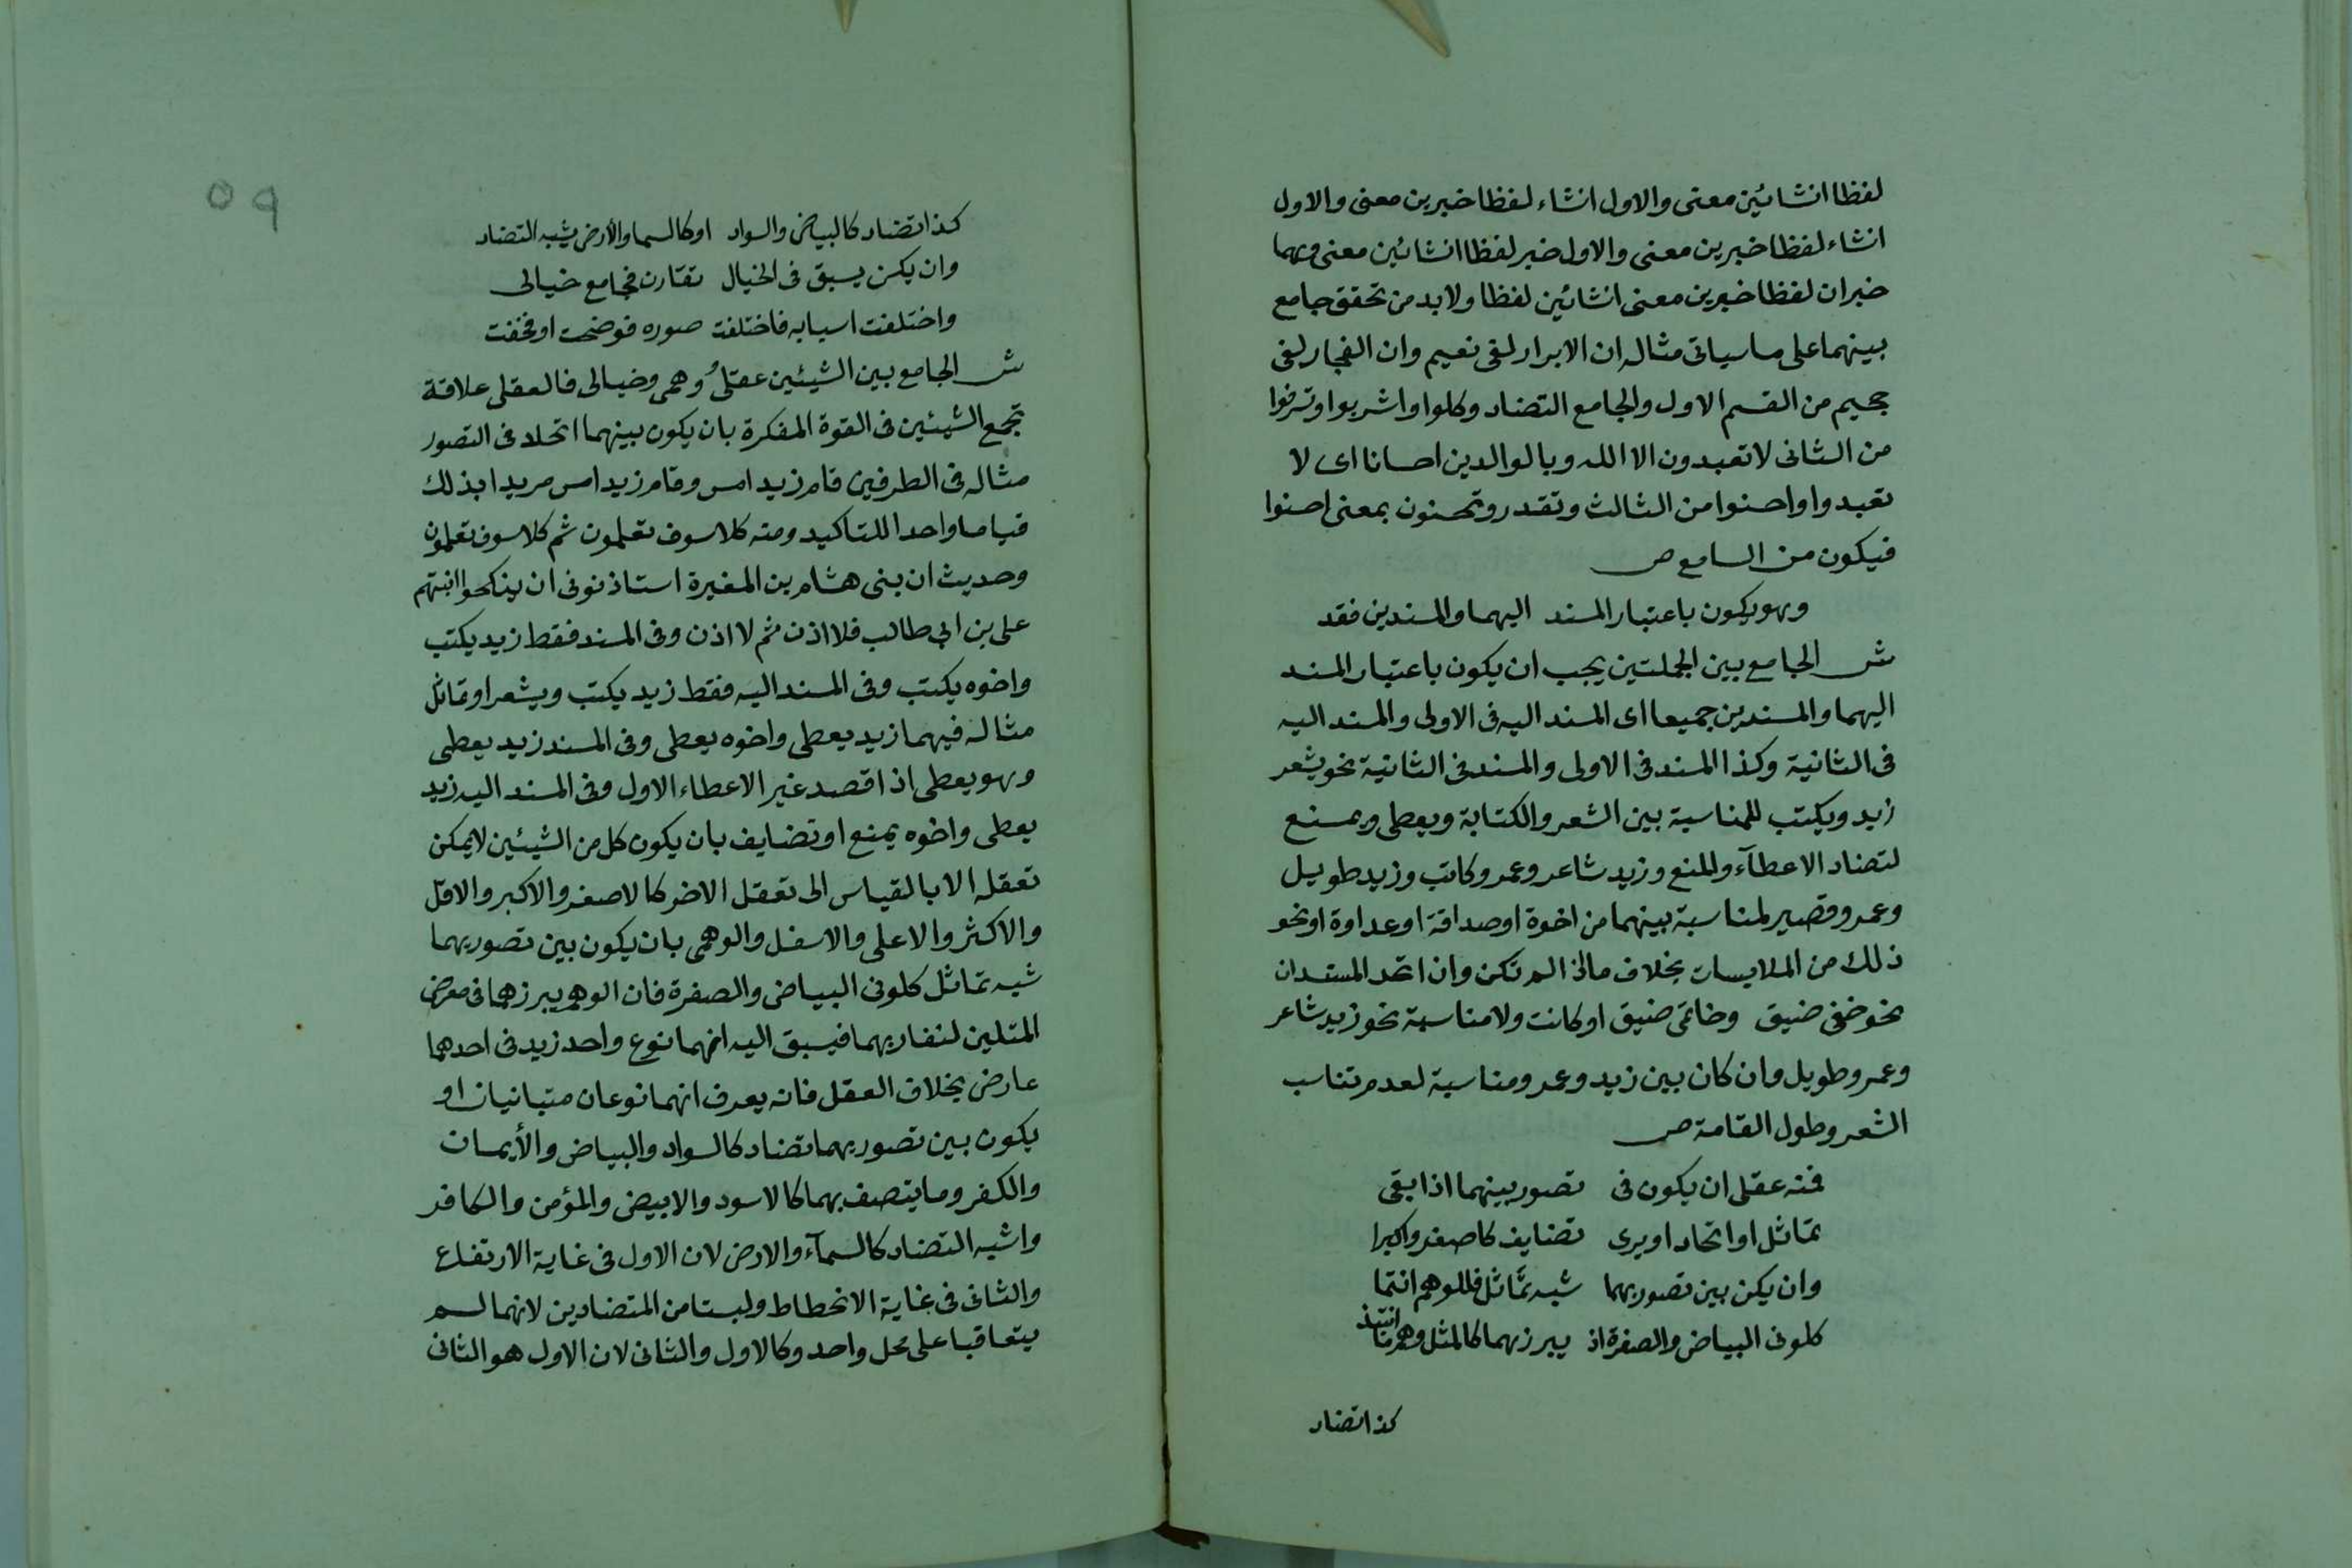 لفظا انشائين معنى والاول انشاء لفظا خبرين معنى والاول
انشاء لفظا خبرين معنى والاول خبر لفظا انشائين معنى وهما
خبران لفظا خبرين معنى انشائين لفظا ولا بد من تحقق جامع
بينهما على ما سياتى مثاله ان الابرار لفى نعيم وان الفجار لفى
جحيم من القسم الاول والجامع التضاد وكلوا واشربوا وتسرفوا
من الثانى لا تعبدون الا الله وبالوالدين احسانا اى لا
تعبدوا واحسنوا من الثالث وتقدر وتحسنون بمعنى احسنوا
فيكون من السامع ص
وهو يكون باعتبار المسند اليهما والمسندين فقد
ش الجامع بين الجملتين يجب ان يكون باعتبار المسند
اليهما والمسندين جميعا اى المسند اليه فى الاولى والمسند اليه
فى الثانية وكذا المسند فى الاولى والمسند فى الثانية نحو يشعر
زيد ويكتب للمناسبة بين الشعر والكتابة ويعطى ويمنع
لتضاد الاعطآء والمنع وزيد شاعر وعمرو كاتب وزيد طويل
وعمرو قصير لمناسبة بينهما من اخوة او صداقة او عداوة او نحو
ذلك من الملابسات بخلاف ما اذا لم تكن وان اتحد المسندان
نحو خفى ضيق وخاتمى ضيق او كانت ولا مناسبة نحو زيد شاعر
وعمرو طويل وان كان بين زيد وعمرو مناسبة لعدم تناسب
الشعر وطول القامة ص
فمنه عقلى ان يكون فى تصور بينهما اذا بقى
تماثل او اتحاد او يرى تضايف كاصغر واكبرا
وان يكن بين تصوريهما شبه تماثل فللوهم انتما
كلونى البياض والصفرة اذ يبرزهما كالمثل وهم
كذا تضاد
٥٩
كذا تضاد كالبياض والسواد او كالسما والأرض يشبه التضاد
وان يكن يسبق فى الخيال تقارن فجامع خيالى
واختلفت اسبابه فاختلفت صوره فوضحت او فخفت
ش الجامع بين الشيئين عقلى وهمى وخيالى فالعقلى علاقة
تجمع الشيئين فى القوة المفكرة بان يكون بينهما اتحاد فى التصور
مثاله فى الطرفين قام زيد امس وقام زيد امس مريدا بذلك
قياما واحدا للتاكيد ومنه كلا سوف تعلمون ثم كلا سوف تعلمون
وحديث ان بنى هشام بن المغيرة استاذنونى ان ينكحوا ابنتهم
على بن ابي طالب فلا اذن ثم لا اذن وفى المسند فقط زيد يكتب
واخوه يكتب وفى المسند اليه فقط زيد يكتب ويشعر او تماثل
مثاله فيهما زيد يعطى واخوه يعطى وفى المسند زيد يعطى
وهو يعطى اذا قصد غير الاعطاء الاول وفى المسند اليه زيد
يعطى واخوه يمنع او تضايف بان يكون كل من الشيئين لا يمكن
تعقله الا بالقياس الى تعقل الاخر كالاصغر والاكبر والاقل
والاكثر والاعلى والاسفل والوهمى بان يكون بين تصوريهما
شبه تماثل كلونى البياض والصفرة فان الوهم يبرزهما فى معرض
المتلين لتقاربهما فيسبق اليه انهما نوع واحد زيد فى احدهما
عارض بخلاف العقل فانه يعرف انهما نوعان متبانيان او
يكون بين تصوريهما تضاد كالسواد والبياض والأيمان
والكفر وما يتصف بهما كالاسود والابيض والمؤمن والكافر
واشبه التضاد كالسمآء والارض لان الاول فى غاية الارتفاع
والثانى فى غاية الانحطاط وليستا من المتضادين لانهما لم
يتعاقبا على محل واحد وكالاول والثانى لان الاول هو الثانى